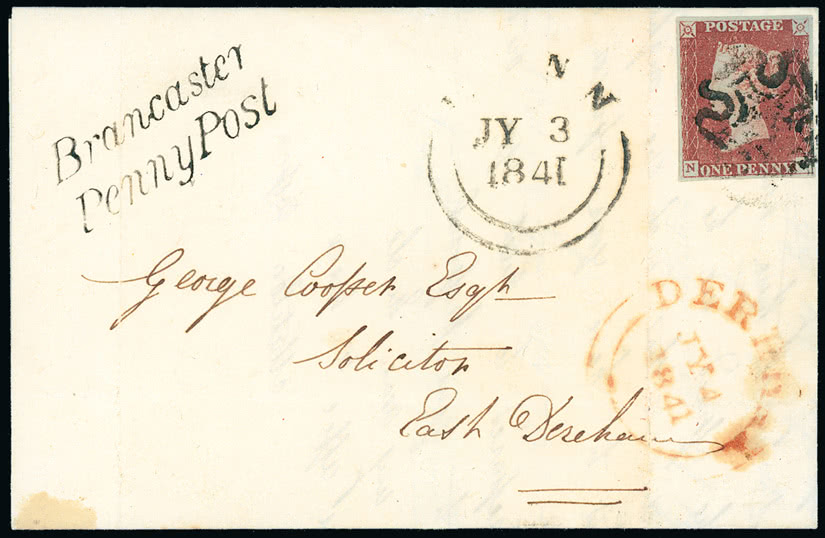 Brancaster
Penny Post
NN
JY 3
1841
POSTAGE
N
ONE PENNY
George Cooper Esqr
Solicitor
East Dereham
DEREHAM
JY 4
1841